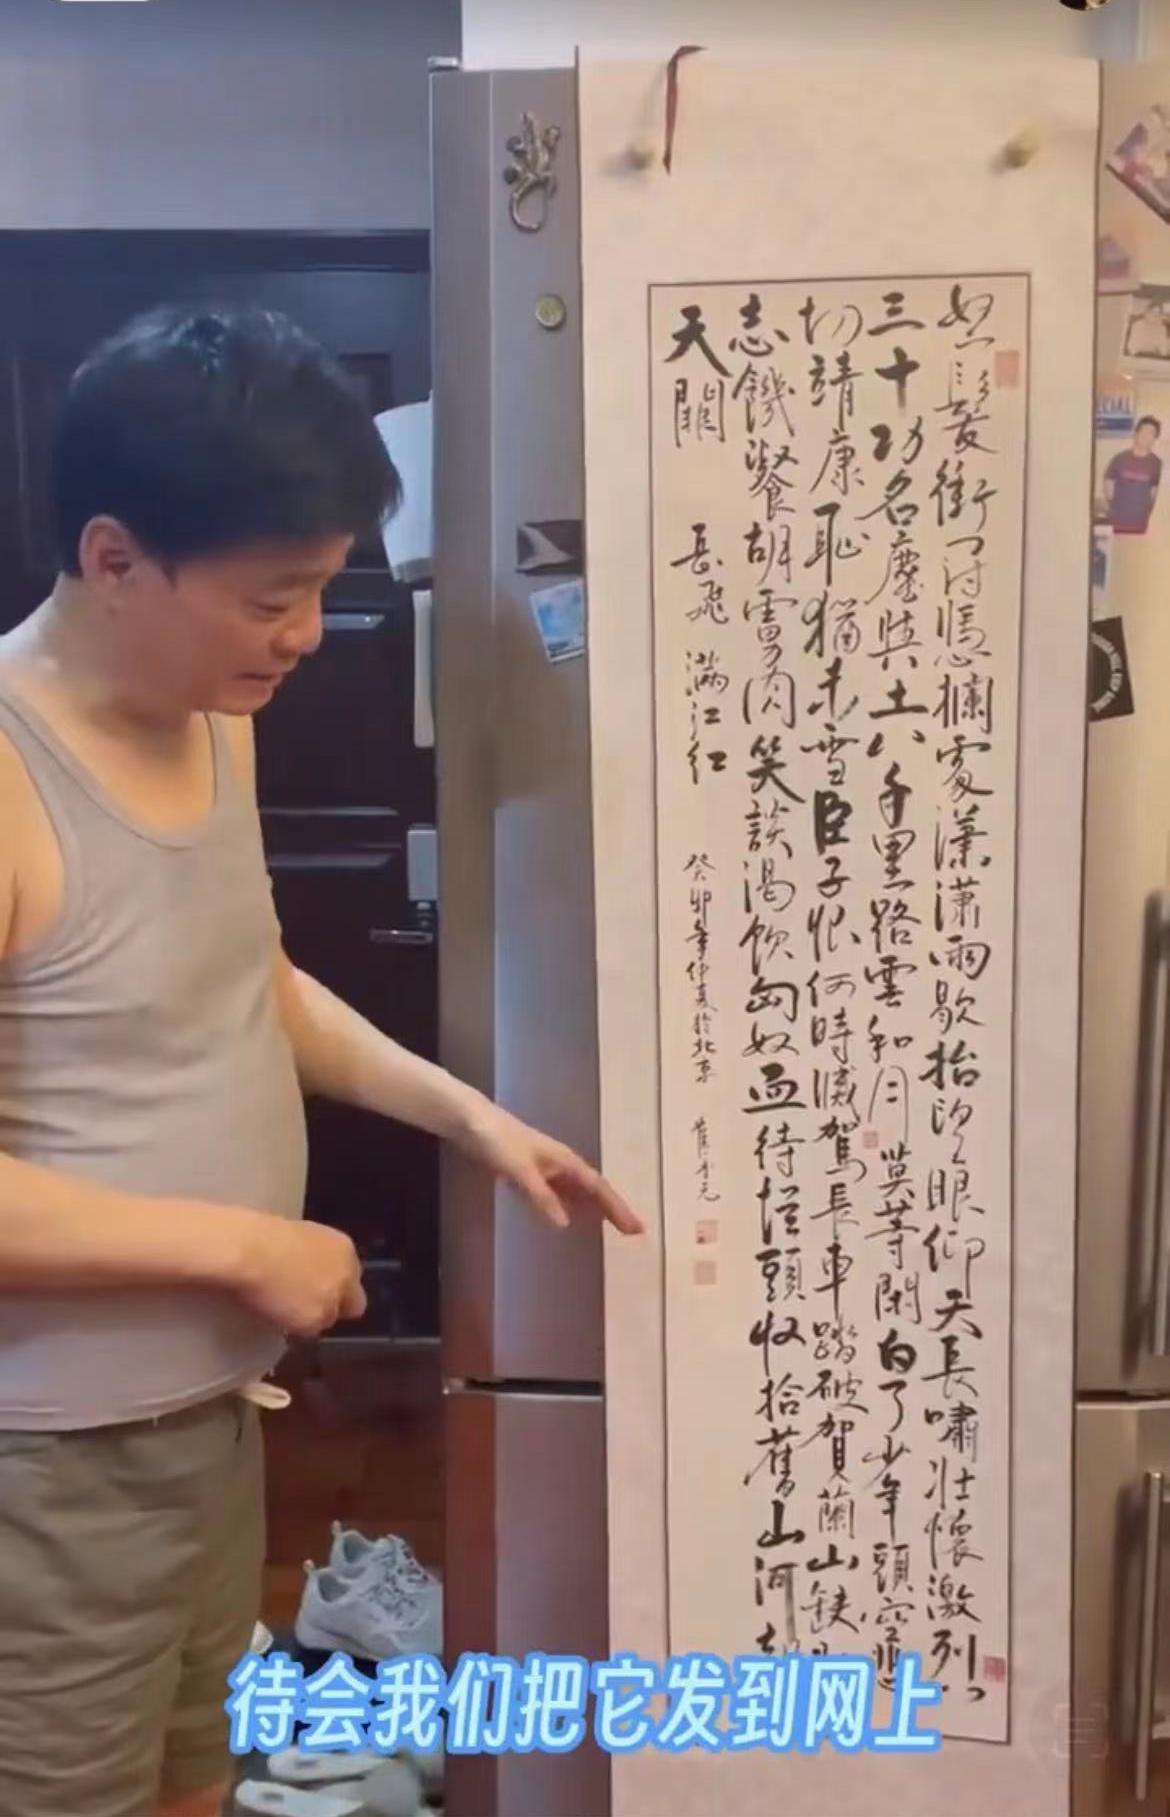 怒髮衝冠憑欄處瀟瀟雨歇抬望眼仰天長嘯壯懷激烈
三十功名塵與土八千里路雲和月莫等閑白了少年頭空悲
切靖康恥猶未雪臣子恨何時滅駕長車踏破賀蘭山缺
志饑餐胡虜肉笑談渴飲匈奴血待從頭收拾舊山河
天闕 岳飛 滿江紅 癸卯年仲夏於北京 崔永元
待会我们把它发到网上